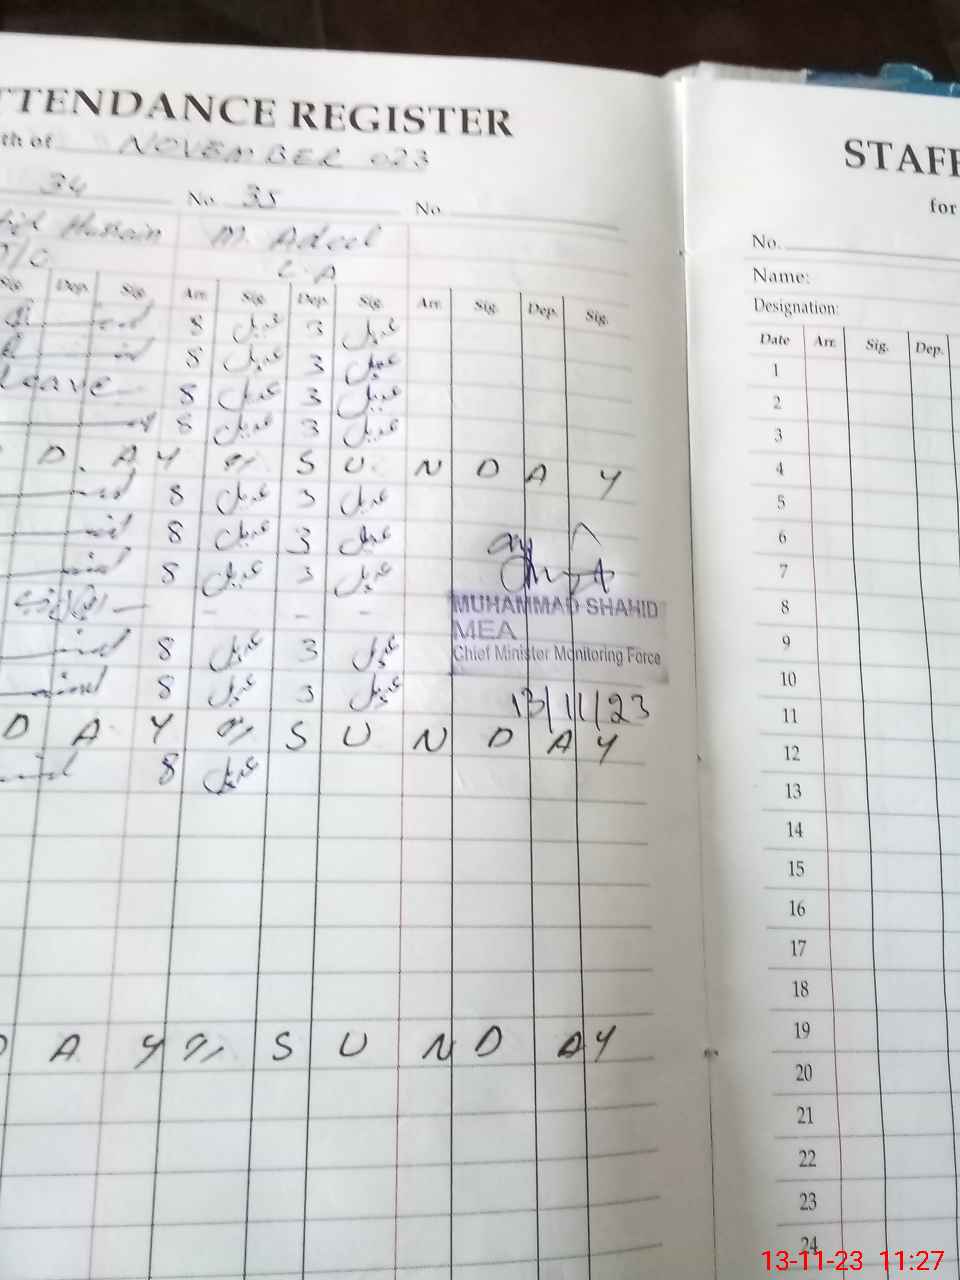 TTENDANCE REGISTER
th of NOVEMBER 023
34 No. 35 No.
Hussain M. Adeel
C.A
Sig. Dep. Sig. Arr. Sig. Dep. Sig. Arr. Sig. Dep. Sig.
8 عدیل 3 عدیل
8 عدیل 3 عدیل
Leave 8 عدیل 3 عدیل
8 عدیل 3 عدیل
D A Y S U N D A Y
8 عدیل 3 عدیل
8 عدیل 3 عدیل
8 عدیل 3 عدیل
- - -
8 عدیل 3 عدیل
8 عدیل 3 عدیل
D A Y S U N D A Y
8 عدیل
D A Y S U N D A Y
MUHAMMAD SHAHID
MEA
Chief Minister Monitoring Force
13/11/23
STAFF
for
No.
Name:
Designation:
Date Arr. Sig. Dep.
1
2
3
4
5
6
7
8
9
10
11
12
13
14
15
16
17
18
19
20
21
22
23
24
13-11-23 11:27